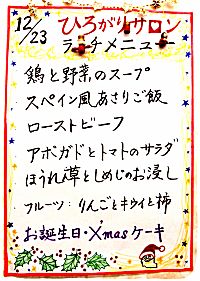 12/23
ひろがりサロン
ランチメニュー
鶏と野菜のスープ
スペイン風あさりご飯
ローストビーフ
アボガドとトマトのサラダ
ほうれん草としめじのお浸し
フルーツ:りんごとキウイと柿
お誕生日・X'masケーキ